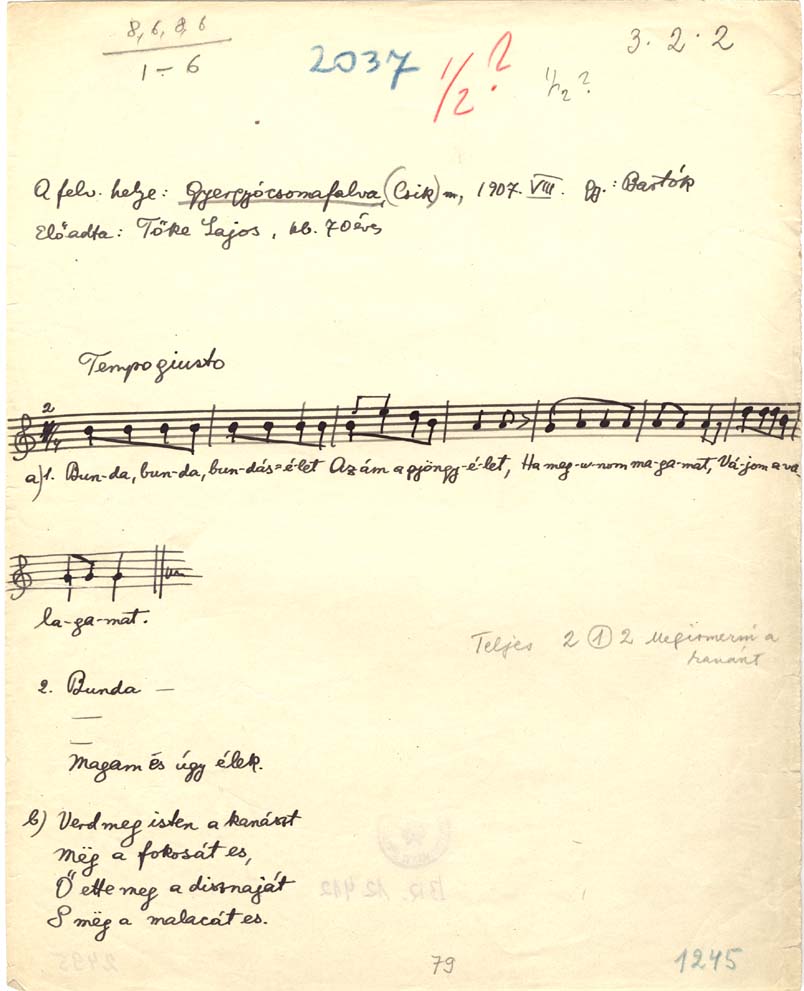 8, 6, 8, 6
1 – 6
2037
1/2?
1/2?
3. 2. 2
A felv. helye: Gyergyócsomafalva, (Csik) m, 1907. VIII. Gy.: Bartók
Előadta: Tőke Lajos, kb. 70 éves
Tempo giusto
2
a) 1. Bun-da, bun-da, bun-dás=é-let Az ám a gyöngy-é-let, Ha meg-u-nom ma-ga-mat, Vá-jom a va-
la-ga-mat.
Teljes 2 ① 2 Megismerni a
kanászt
2. Bunda —
—
—
Magam és úgy élek.
b) Verd meg isten a kanászt
Mëg a fokosát es,
Ő ette meg a disznaját
S mëg a malacát es.
BR. 12 412
79
1245
2495